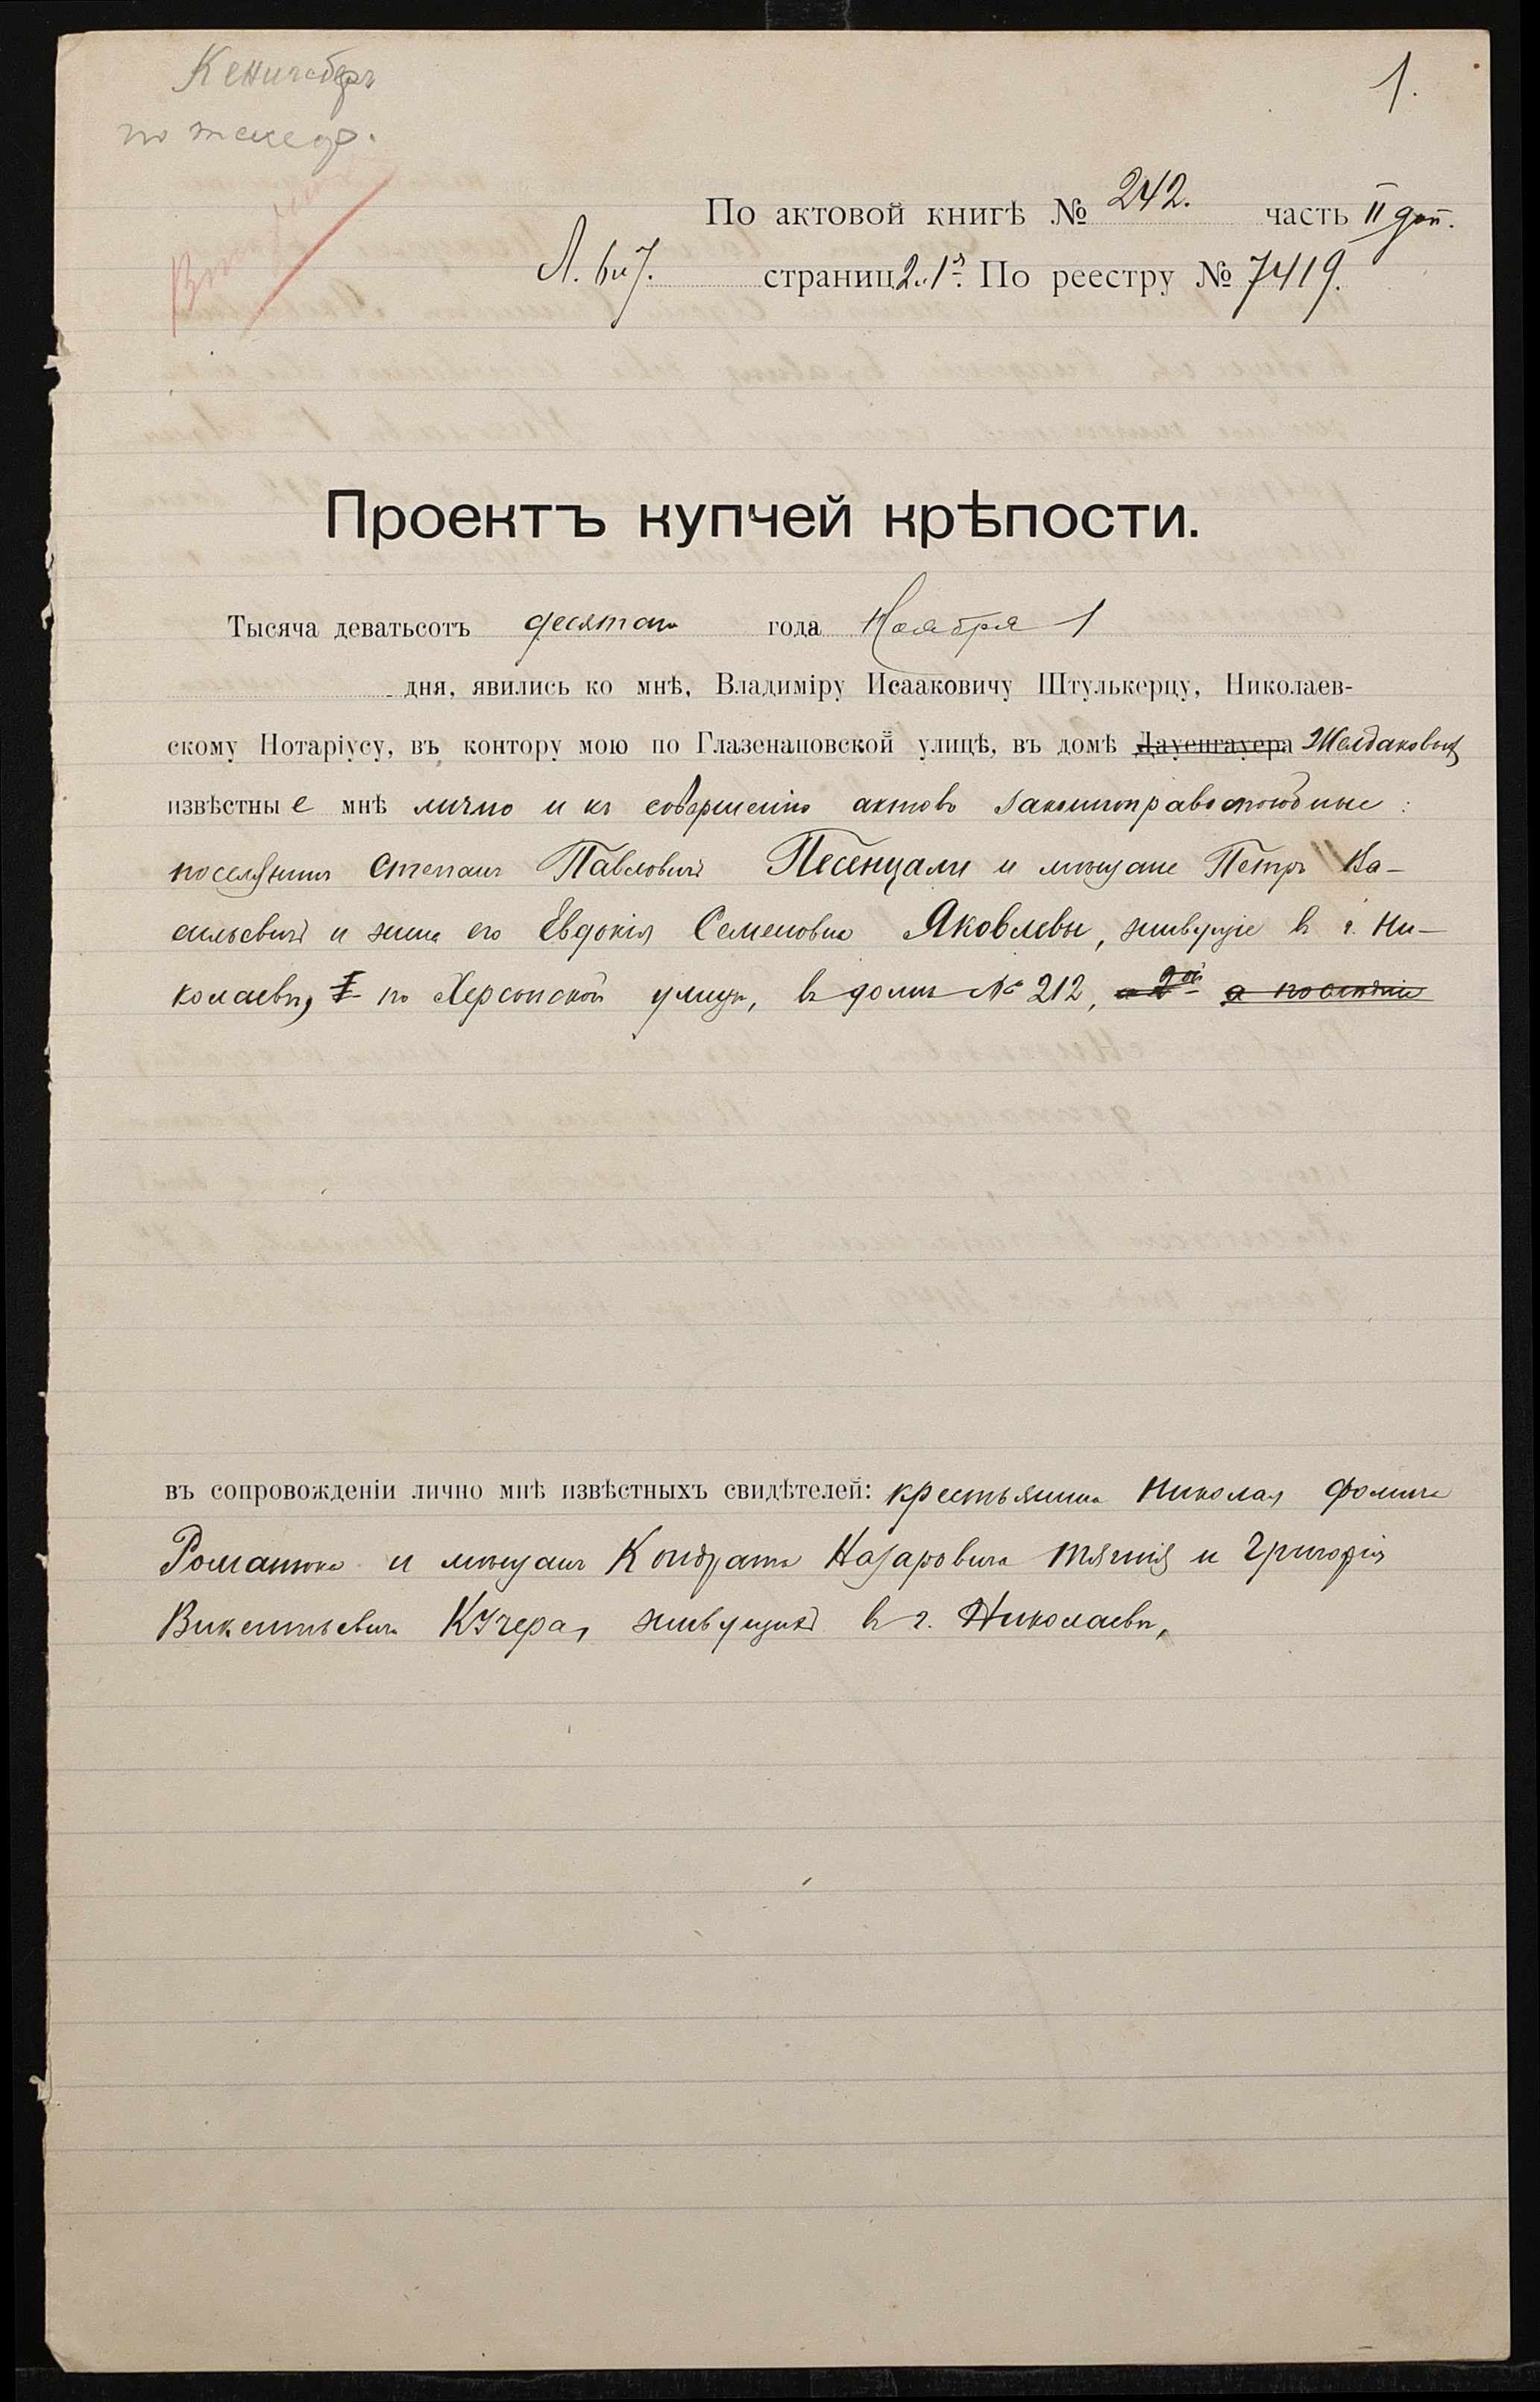 Кенигсберг
по
1.
По актовой книгѣ № 242. часть II доп.
Л. 6 и 7. страниц 2 и 1я. По реестру № 7419.
Проектъ купчей крѣпости.
Тысяча деватьсотъ десятаго года Ноября 1
дня, явились ко мнѣ, Владиміру Исааковичу Штулькерцу, Николаев-
скому Нотаріусу, въ контору мою по Глазенаповской улицѣ, въ домѣ Дауенгауера Желдаковыхъ
извѣстны е мнѣ лично и къ совершенію актовъ законноправоспособные:
поселянинъ Степанъ Павловичъ Песенцали и мѣщане Петръ Ва-
сильевичъ и жена его Евдокія Семеновна Яковлевы, живущіе въ г. Ни-
колаевѣ, I по Херсонской улицѣ, въ домѣ № 212, а 2ой а послѣдніе
въ сопровожденіи лично мнѣ извѣстныхъ свидѣтелей: крестьянина Николая Фомича
Романюка и мѣщанъ Кондрата Назаровича и Григорія
Викентьевича Кучера, живущихъ въ г. Николаевѣ,